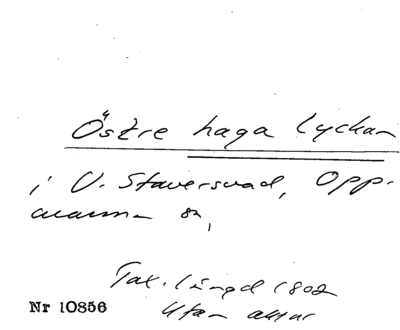 Östre haga lyckan
i V. Staversvad, Opp-
manna sn,
Tax. längd 1802
Utan akt nr
Nr 10856